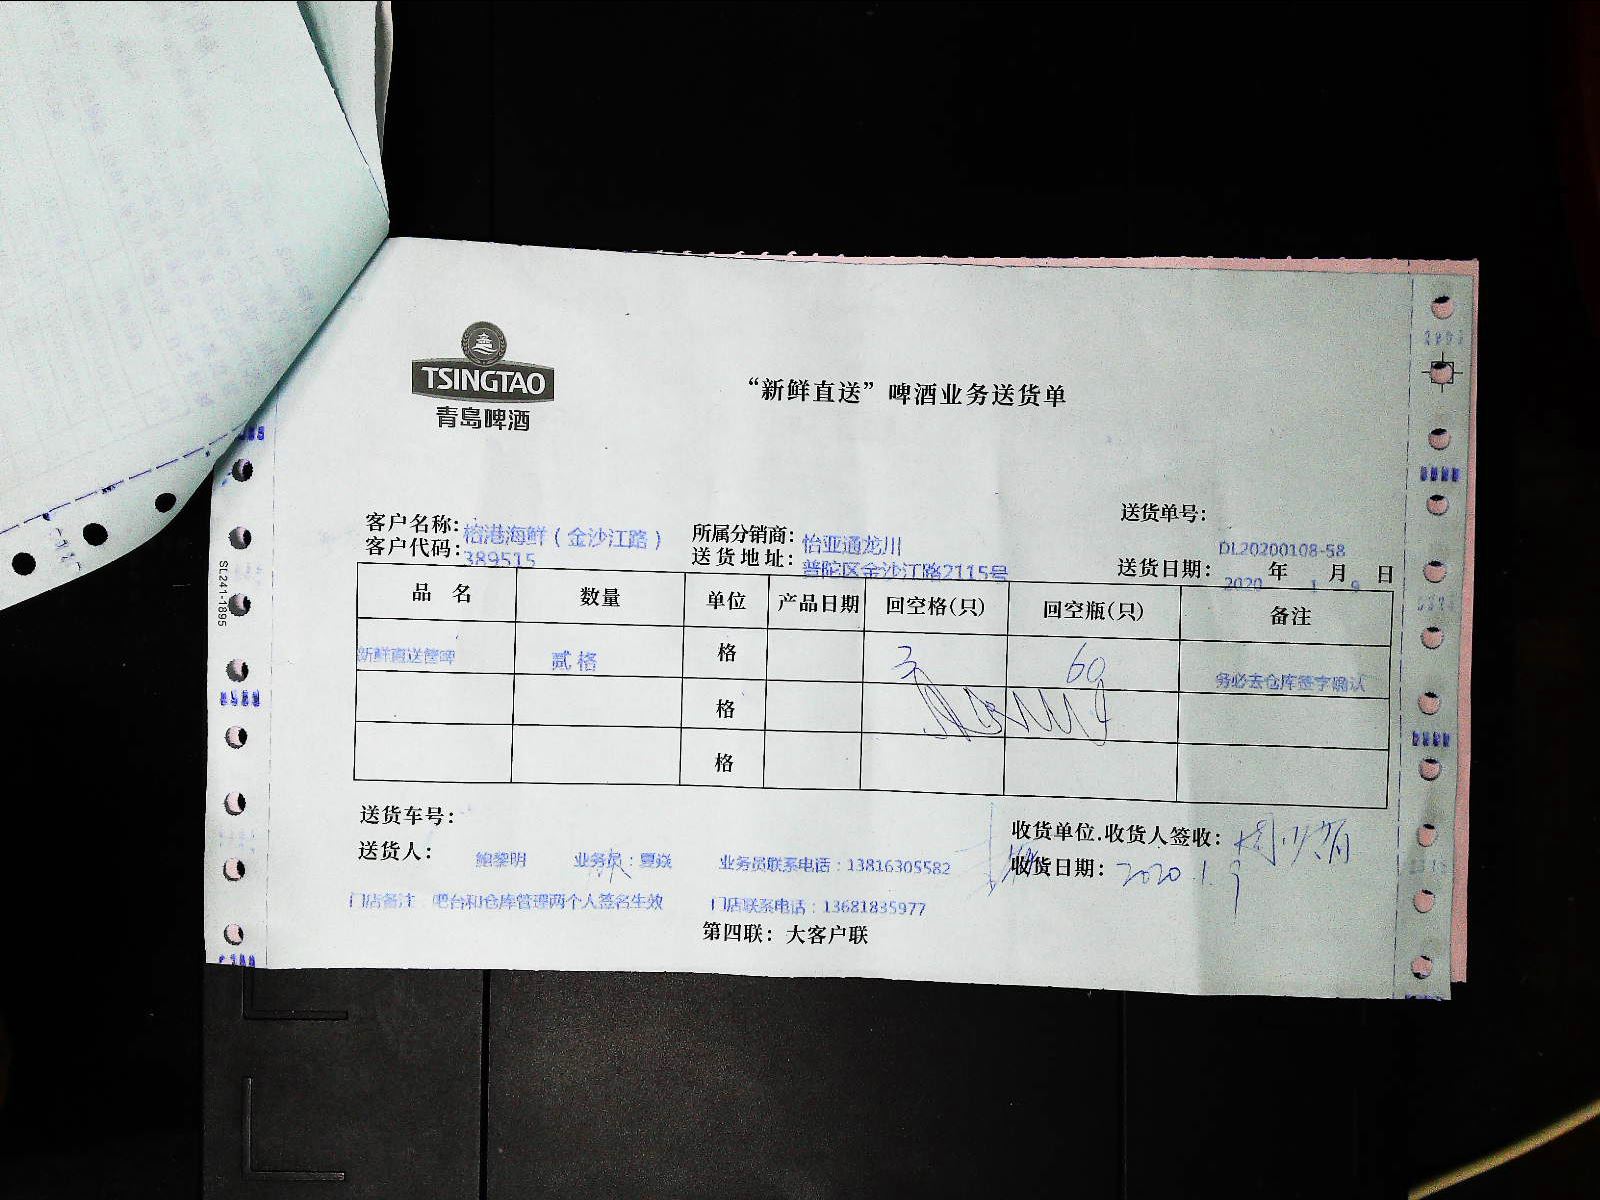 TSINGTAO
青島啤酒
“新鲜直送”啤酒业务送货单
送货单号：
DL20200108-58
客户名称：榕港海鲜（金沙江路） 所属分销商：怡亚通龙川
客户代码：389515 送货地址：普陀区金沙江路2115号 送货日期：2020年1月9日
品 名 数量 单位 产品日期 回空格(只) 回空瓶(只) 备注
新鲜直送 贰格 格 3 60 务必去仓库签字确认
格
格
送货车号：
收货单位.收货人签收：
送货人：鲍黎明 业务员：夏焱 业务员联系电话：13816305582 收货日期：2020.1.9
门店备注 吧台和仓库管理两个人签名生效 门店联系电话：13681835977
第四联：大客户联
SL241-1895